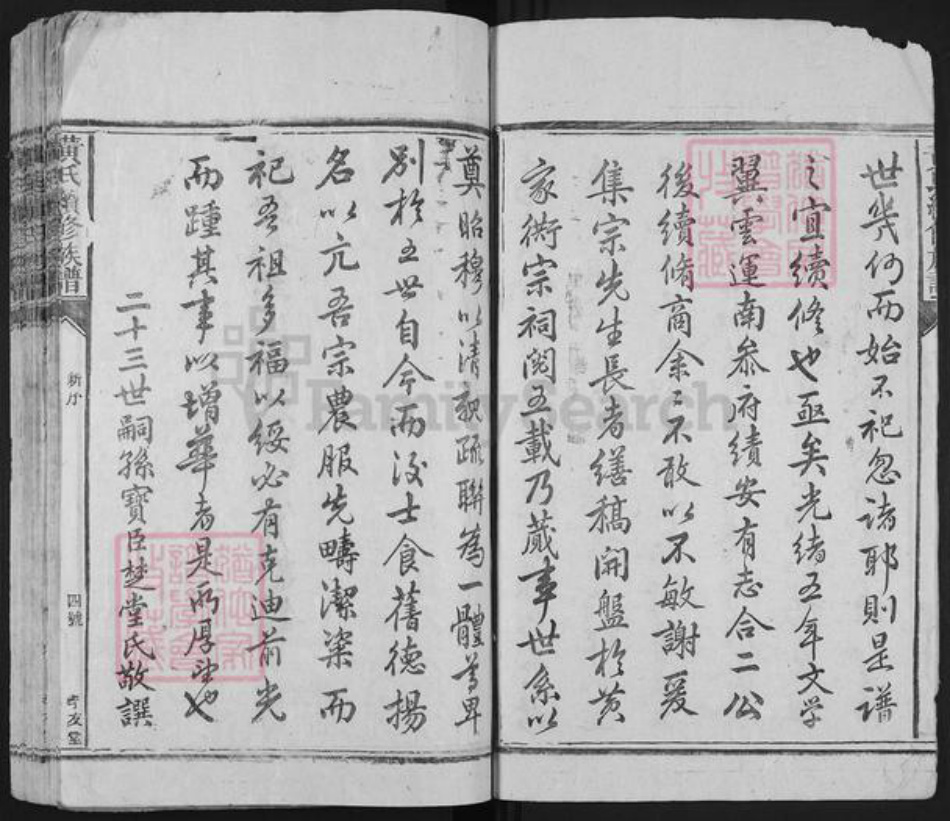 世幾何而始不祀忽諸耶則是譜
之宜續修也亟矣光緒五年文学
翼雲運南叅府績安有志合二公
後續脩商余〻不敢以不敏謝爰
集宗先生長者繕稿開盤於黄
家衖宗祠閱五載乃蕆事世系以
奠昭穆以清親疏聯為一體尊卑
別於五世自今而後士食舊德揚
名以亢吾宗農服先疇潔粢而
祀吾祖多福以綏必有克迪前光
而踵其事以增華者是所厚望也
二十三世嗣孫寶臣楚堂氏敬譔
黃氏續修族譜
新序
四號
孝友堂
FamilySearch